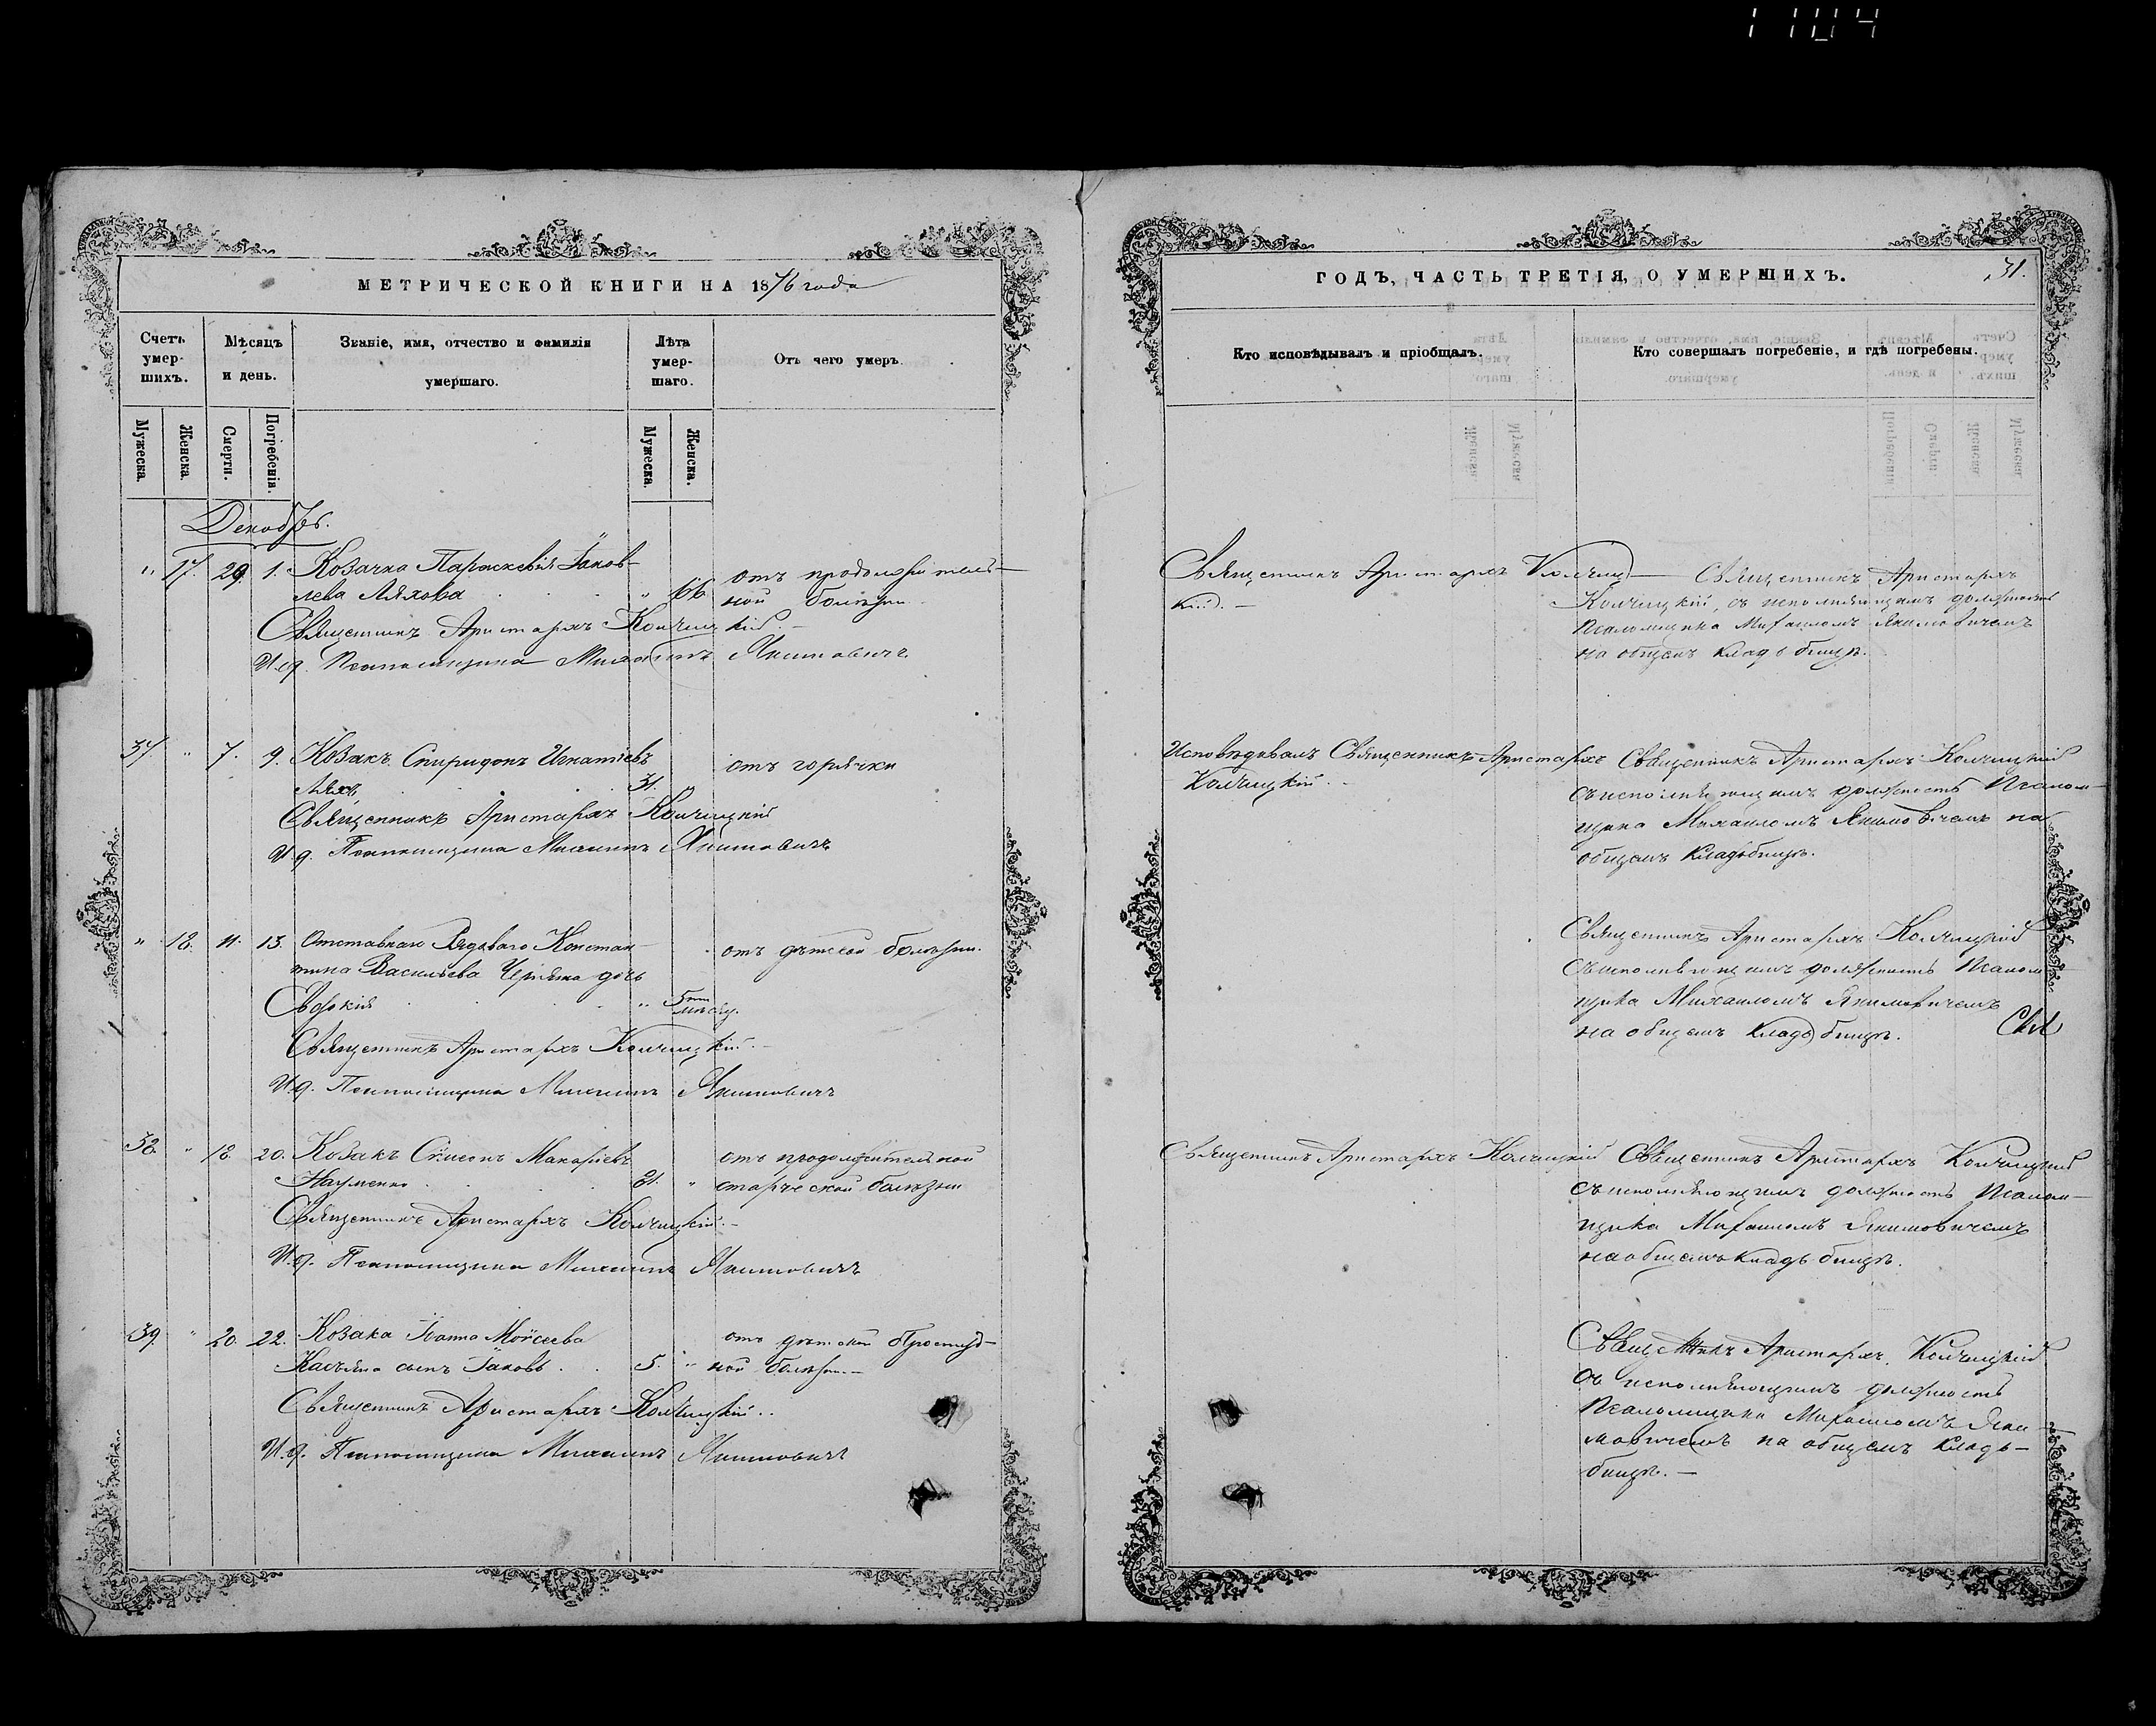 1104
МЕТРИЧЕСКОЙ КНИГИ НА 1876 года
Счетъ умер-шихъ.
Мѣсяцъ и день.
Званіе, имя, отчество и фамилія умершаго.
Лѣта умер-шаго.
Отъ чего умеръ.
Мужеска.
Женска.
Смерти.
Погребенія.
Мужеска.
Женска.
Декабрь.
" 17. 29. 1. Козачка Параскевія Іаков-
лева Ляхова " 66 отъ продолжитель-
ной болѣзни.
Священникъ Аристархъ Колчицкій.
И. д. Псаломщика Михаилъ Якимовичъ
37. " 7. 9. Козакъ Спиридонъ Игнатіевъ
Ляхъ 31. отъ горячки
Священникъ Аристархъ Колчицкій
И. д. Псаломщика Михаилъ Якимовичъ
" 18. 11. 13. Отставнаго Рядоваго Констан-
тина Васильева дочь
" 5 отъ дѣтской болѣзни.
Священникъ Аристархъ Колчицкій.
И. д. Псаломщика Михаилъ Якимовичъ
38. " 18. 20. Козакъ Макаріевъ
Науменко 81. " отъ продолжительной
старческой болѣзни
Священникъ Аристархъ Колчицкій.
И. д. Псаломщика Михаилъ Якимовичъ
39. " 20. 22. Козака Іоанна Моисеева
сынъ Іаковъ 5. " отъ дѣтской простуд-
ной болѣзни.
Священникъ Аристархъ Колчицкій.
И. д. Псаломщика Михаилъ Якимовичъ
ГОДЪ, ЧАСТЬ ТРЕТІЯ, О УМЕРШИХЪ.
31.
Кто исповѣдывалъ и пріобщалъ.
Кто совершалъ погребеніе, и гдѣ погребены.
Священникъ Аристархъ Колчиц-
кій.
Священникъ Аристархъ
Колчицкій, съ исполняющимъ должность
Псаломщика Михаиломъ Якимовичемъ
на общемъ кладбищѣ.
Исповѣдывалъ Священникъ Аристархъ
Колчицкій.
Священникъ Аристархъ Колчицкій
съ исполняющимъ должность Псалом-
щика Михаиломъ Якимовичемъ на
общемъ кладбищѣ.
Священникъ Аристархъ Колчицкій
съ исполняющимъ должность Псалом-
щика Михаиломъ Якимовичемъ
на общемъ кладбищѣ.
Священникъ Аристархъ Колчицкій
Священникъ Аристархъ Колчицкій
съ исполняющимъ должность Псалом-
щика Михаиломъ Якимовичемъ
на общемъ кладбищѣ.
Священникъ Аристархъ Колчицкій
съ исполняющимъ должность
Псаломщика Михаиломъ Яки-
мовичемъ на общемъ клад-
бищѣ.